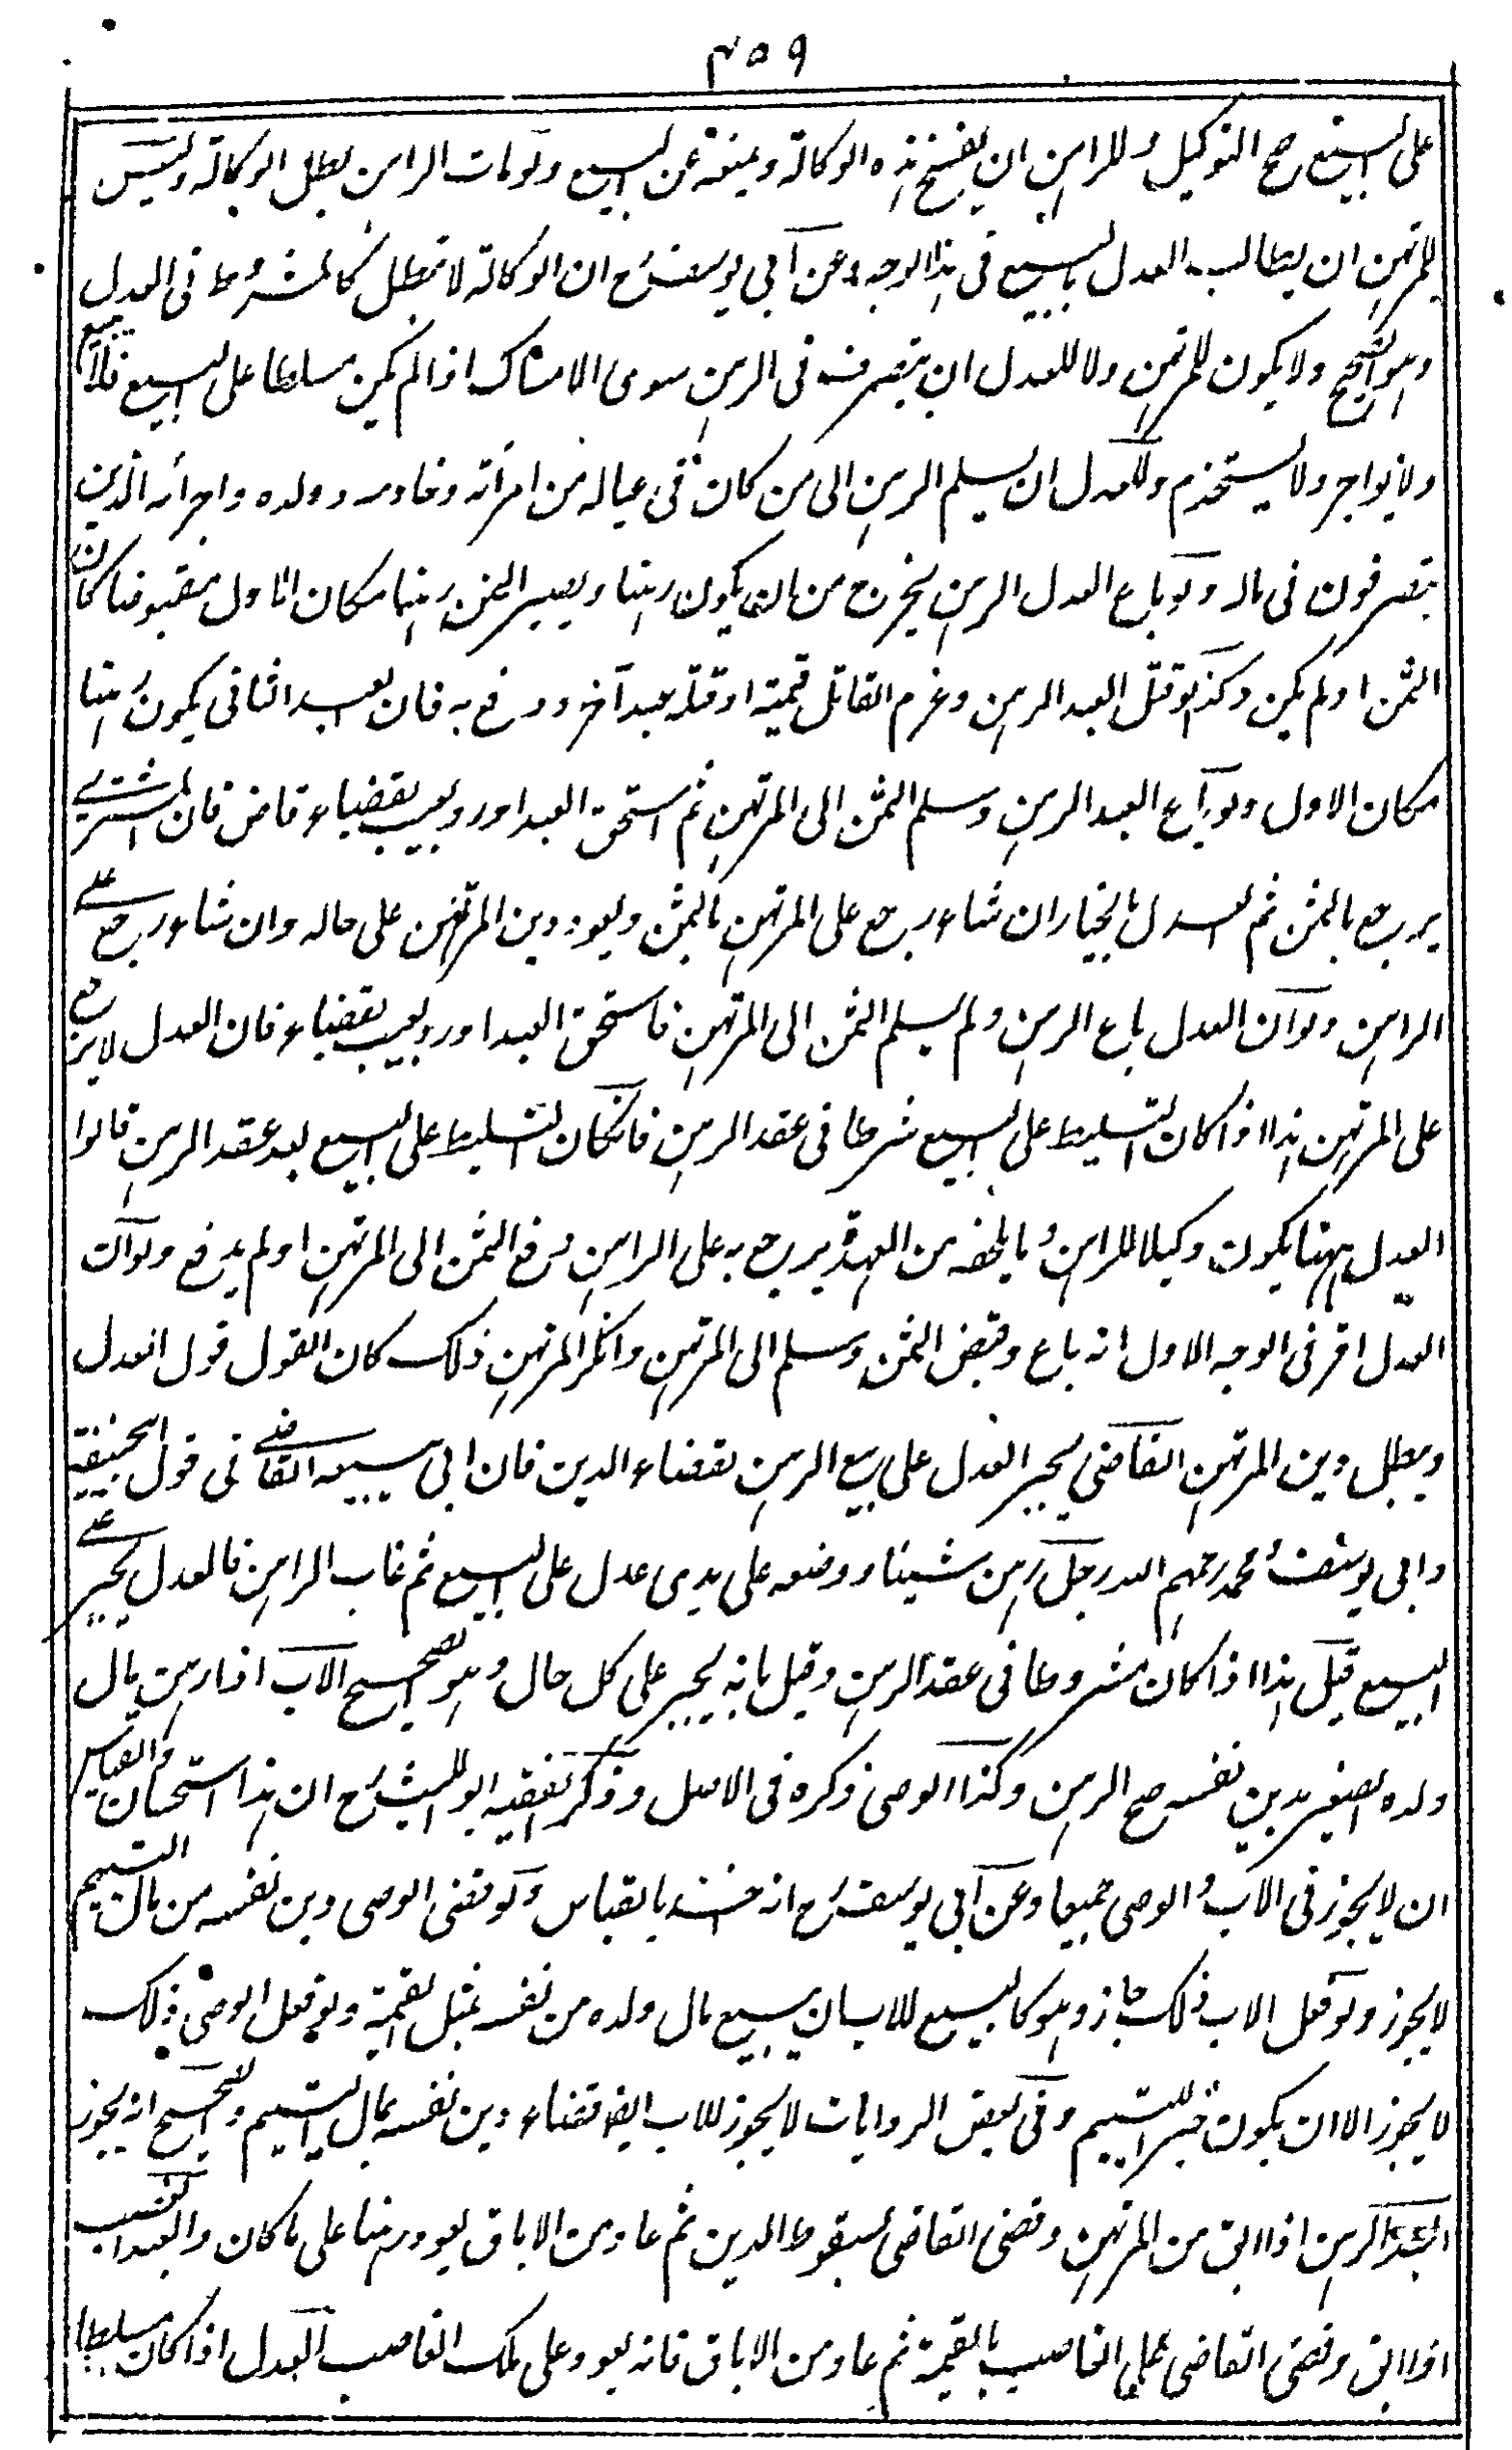 ٤٥٩
على البيع صح التوكيل وللراهن ان يفسخ هذه الوكالة ويمنعه عن البيع ولو مات الراهن بطل الوكالة وليس
للمرتهن ان يطالب العدل بالبيع فى هذا الوجه وعن ابي يوسف رح ان الوكالة لا تبطل كالمشروط فى العدل
وهو الصحيح ولا يكون للمرتهن ولا للعدل ان يتصرف فى الرهن سوى الامساك اذا لم يكن مسلطا على البيع فلا يبيع
ولا يواجر ولا يستخدم وللعدل ان يسلم الرهن الى من كان فى عياله من امرأته وخادمه وولده واجرائه الذين
يتصرفون فى ماله ولو باع العدل الرهن يخرج من ان يكون رهنا ويصير الثمن رهنا مكان الاول مقبوضا كان
الثمن او لم يكن وكذا لو قتل العبد الرهن وغرم القاتل قيمته او قتله عبد آخر ودفع به فان العبد الثانى يكون رهنا
مكان الاول ولو باع العبد الرهن وسلم الثمن الى المرتهن ثم استحق العبد او رد بعيب بقضاء قاض فان المشترى
يرجع بالثمن ثم العدل بالخيار ان شاء رجع على المرتهن بالثمن ويعود دين المرتهن على حاله وان شاء رجع على
الراهن ولو ان العدل باع الرهن ولم يسلم الثمن الى المرتهن فاستحق العبد او رد بعيب بقضاء فان العدل لا يرجع
على المرتهن هذا اذا كان التسليط على البيع شرطا فى عقد الرهن فان كان التسليط على البيع بعد عقد الرهن قالوا
العدل ههنا يكون وكيلا للراهن وما يلحقه من العهدة يرجع به على الراهن دفع الثمن الى المرتهن او لم يدفع ولو ان
العدل اقر فى الوجه الاول انه باع وقبض الثمن وسلم الى المرتهن وانكر المرتهن ذلك كان القول قول العدل
ويبطل دين المرتهن القاضى يجبر العدل على بيع الرهن لقضاء الدين فان ابى يبيعه القاضى فى قول ابى حنيفة
وابى يوسف ومحمد رحمهم الله رجل رهن شيئا ووضعه على يدى عدل على البيع ثم غاب الراهن فالعدل يجبر على
البيع قيل هذا اذا كان مشروطا فى عقد الرهن وقيل بانه يجبر على كل حال وهو الصحيح الاب اذا رهن مال
ولده الصغير بدين نفسه صح الرهن وكذا الوصى ذكره فى الاصل وذكر الفقيه ابو الليث رح ان هذا استحسان والقياس
ان لا يجوز فى الاب والوصى جميعا وعن ابي يوسف رح انه اخذ بالقياس ولو قضى الوصى دين نفسه من مال اليتيم
لا يجوز ولو فعل الاب ذلك جاز وهو كالبيع للاب ان يبيع مال ولده من نفسه بمثل القيمة ولو فعل الوصى ذلك
لا يجوز الا ان يكون خير لليتيم وفى بعض الروايات لا يجوز للاب ايضا قضاء دين نفسه بمال اليتيم والصحيح انه يجوز
العبد الرهن اذا ابق من المرتهن وقضى القاضى بسقوط الدين ثم عاد من الاباق يعود رهنا على ما كان والعبد الغصب
اذا ابق وقضى القاضى على الغاصب بالقيمة ثم عاد من الاباق فانه يعود على ملك الغاصب العدل اذا كان مسلطا